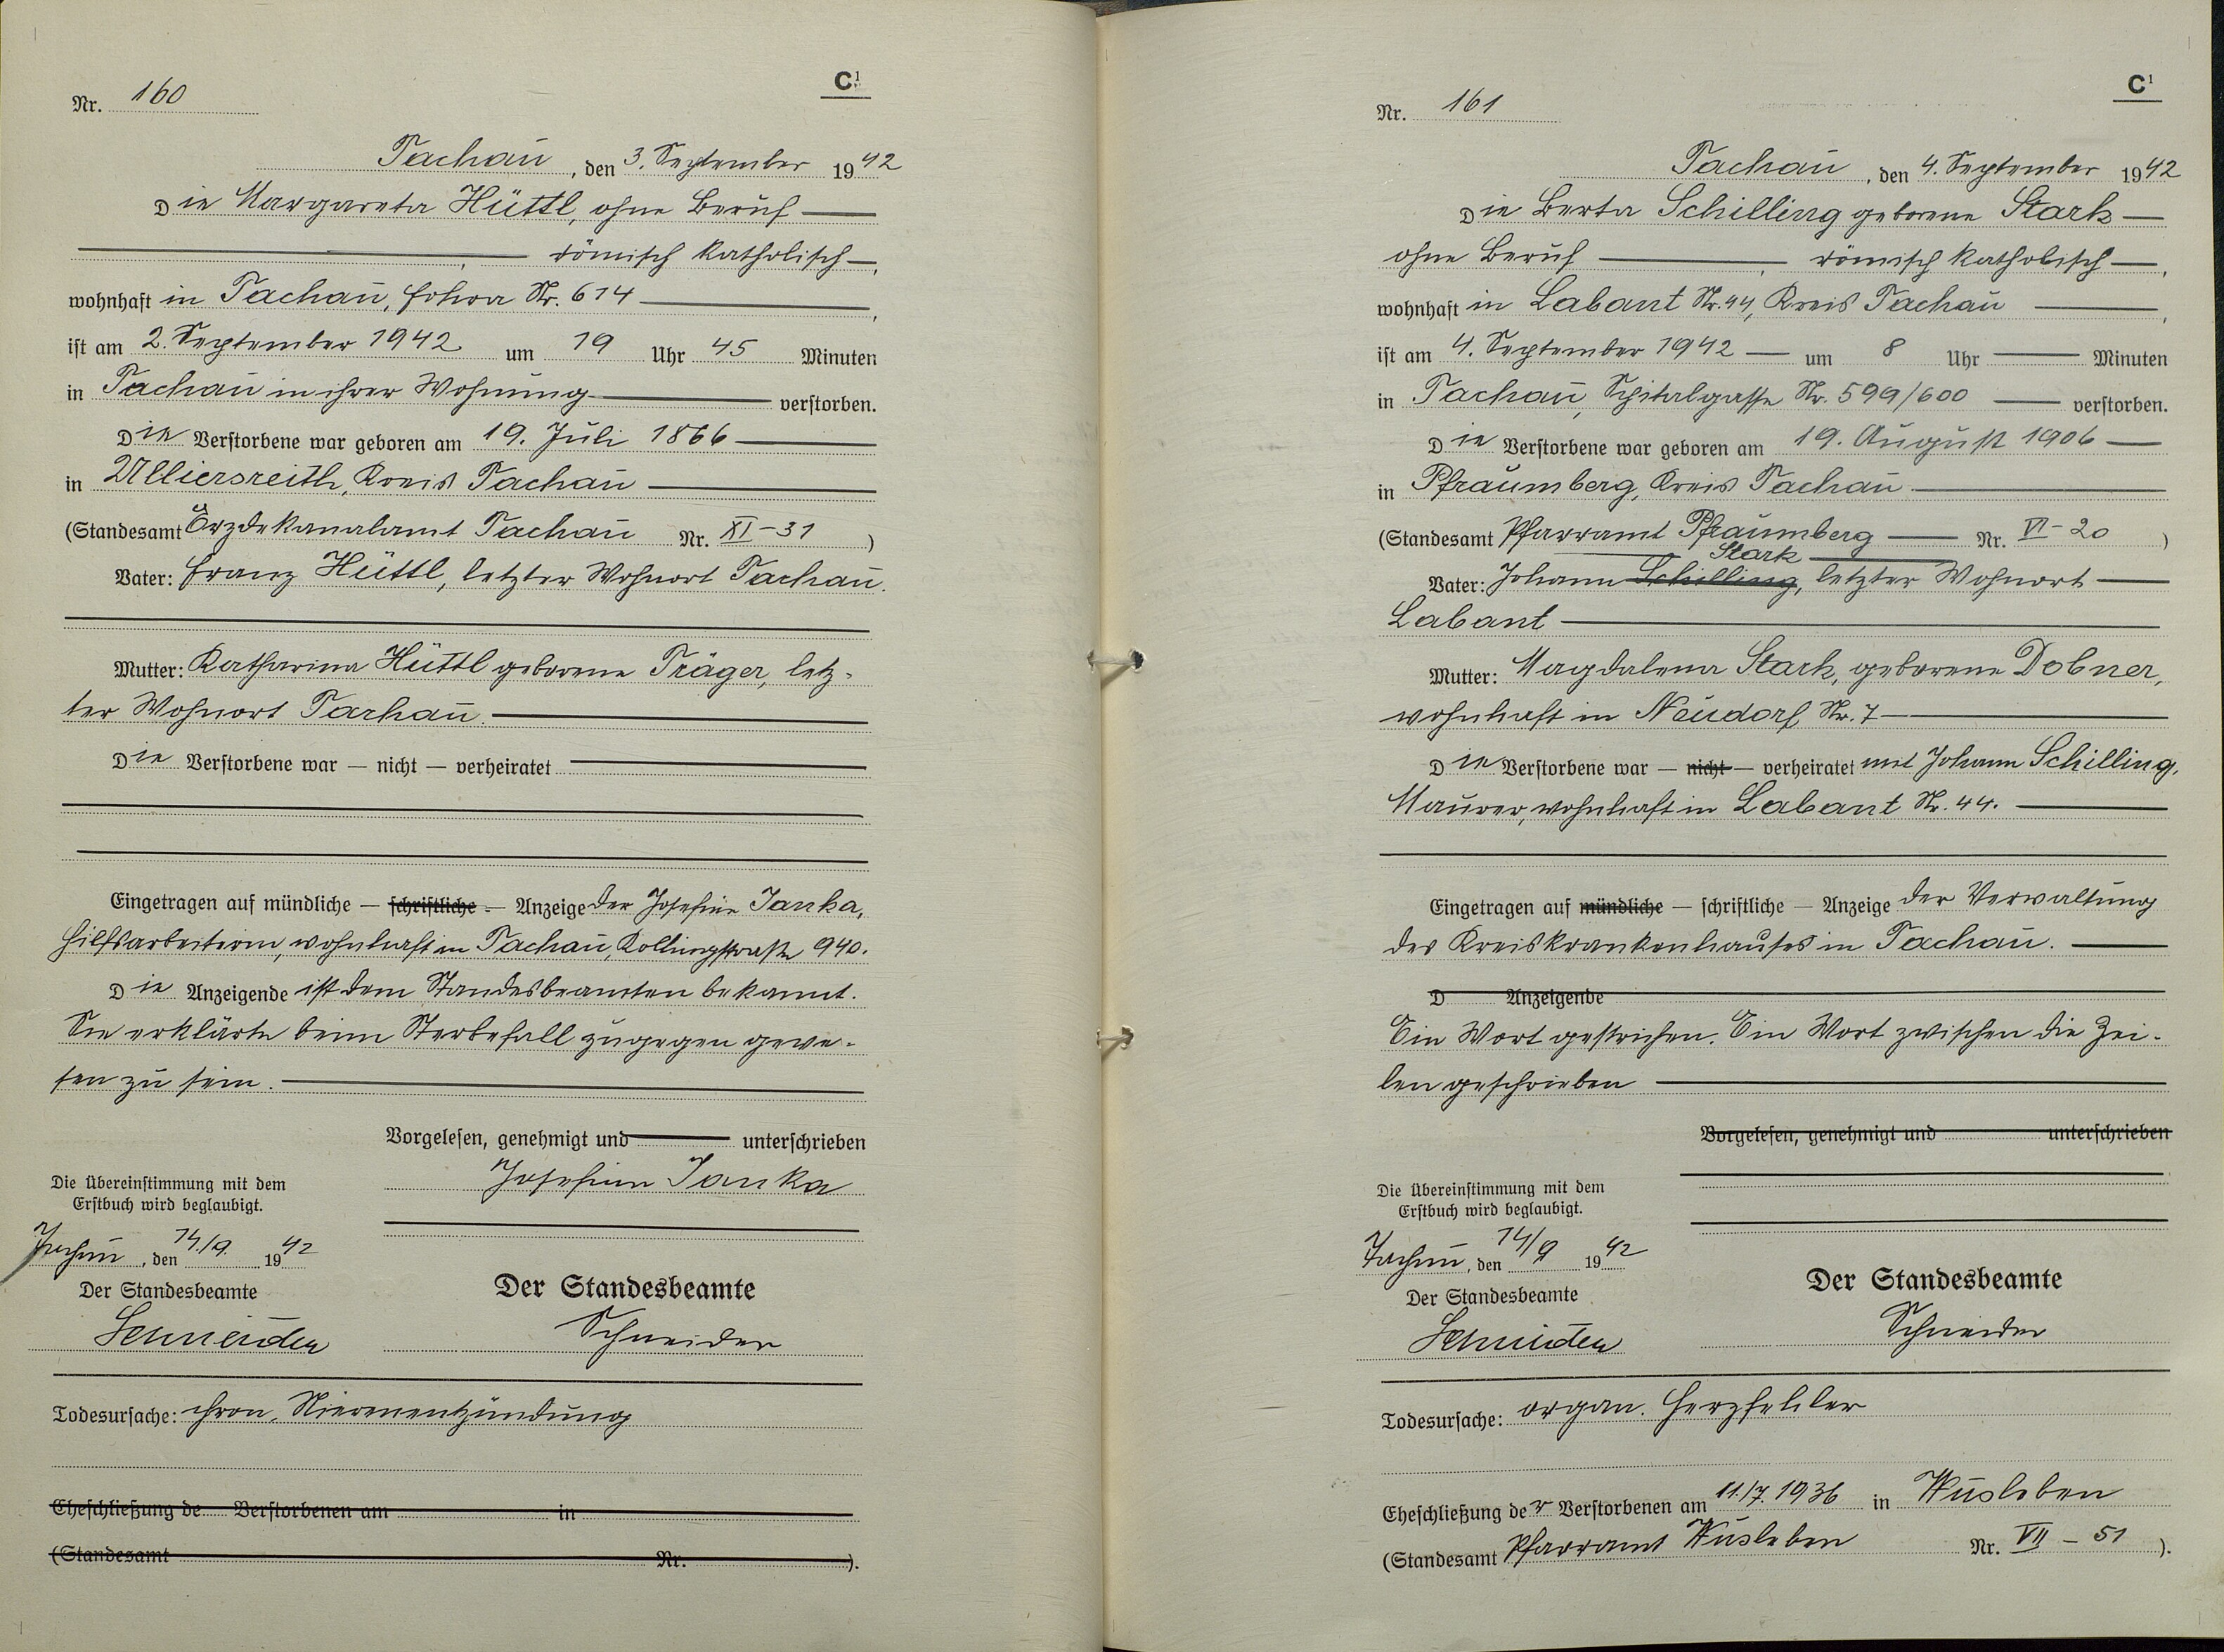 C¹
Nr. 160
Tachau, den 3. September 1942
Die Margareta Hüttl, ohne Beruf
römisch katholisch,
wohnhaft in Tachau, Nr. 614,
ist am 2. September 1942 um 19 Uhr 45 Minuten
in Tachau in ihrer Wohnung verstorben.
Die Verstorbene war geboren am 19. Juli 1866
in Ulliersreith, Kreis Tachau
(Standesamt Erzdekanalamt Tachau Nr. XI-31)
Vater: Franz Hüttl, letzter Wohnort Tachau.
Mutter: Katharina Hüttl geborene Träger, letz-
ter Wohnort Tachau.
Die Verstorbene war — nicht — verheiratet
Eingetragen auf mündliche — schriftliche — Anzeige der Josefine Janka,
Hilfsarbeiterin, wohnhaft in Tachau, Kollingstraße 940.
Die Anzeigende ist dem Standesbeamten bekannt.
Sie erklärte beim Sterbefall zugegen gewe-
sen zu sein.
Vorgelesen, genehmigt und unterschrieben
Josefine Janka
Die Übereinstimmung mit dem
Erstbuch wird beglaubigt.
Tachau, den 14./9. 1942
Der Standesbeamte
Schneider
Der Standesbeamte
Schneider
Todesursache: chron. Nierenentzündung
Eheschließung de Verstorbenen am in
(Standesamt Nr. ).
C¹
Nr. 161
Tachau, den 4. September 1942
Die Berta Schilling geborene Stark
ohne Beruf, römisch katholisch,
wohnhaft in Labant Nr. 44, Kreis Tachau,
ist am 4. September 1942 um 8 Uhr Minuten
in Tachau, Spitalgasse Nr. 599/600 verstorben.
Die Verstorbene war geboren am 19. August 1906
in Pfraumberg, Kreis Tachau
(Standesamt Pfarramt Pfraumberg Nr. VI-20)
Stark
Vater: Johann Schilling, letzter Wohnort
Labant
Mutter: Magdalena Stark, geborene Dobner,
wohnhaft in Neudorf Nr. 7
Die Verstorbene war — nicht — verheiratet mit Johann Schilling,
Maurer, wohnhaft in Labant Nr. 44.
Eingetragen auf mündliche — schriftliche — Anzeige der Verwaltung
des Kreiskrankenhauses in Tachau.
D Anzeigende
Ein Wort gestrichen. Ein Wort zwischen die Zei-
len geschrieben
Vorgelesen, genehmigt und unterschrieben
Die Übereinstimmung mit dem
Erstbuch wird beglaubigt.
Tachau, den 14/9 1942
Der Standesbeamte
Schneider
Der Standesbeamte
Schneider
Todesursache: organ. Herzfehler
Eheschließung der Verstorbenen am 11./7. 1936 in Wusleben
(Standesamt Pfarramt Wusleben Nr. VII - 51).